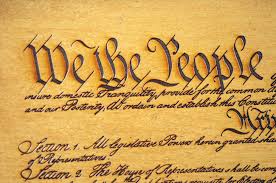 We the People
insure domestic Tranquility, provide for the common
and our Posterity, do ordain and establish this
Section 1. All legislative Powers herein granted
of Representatives.
Section 2. The House of Representatives shall be